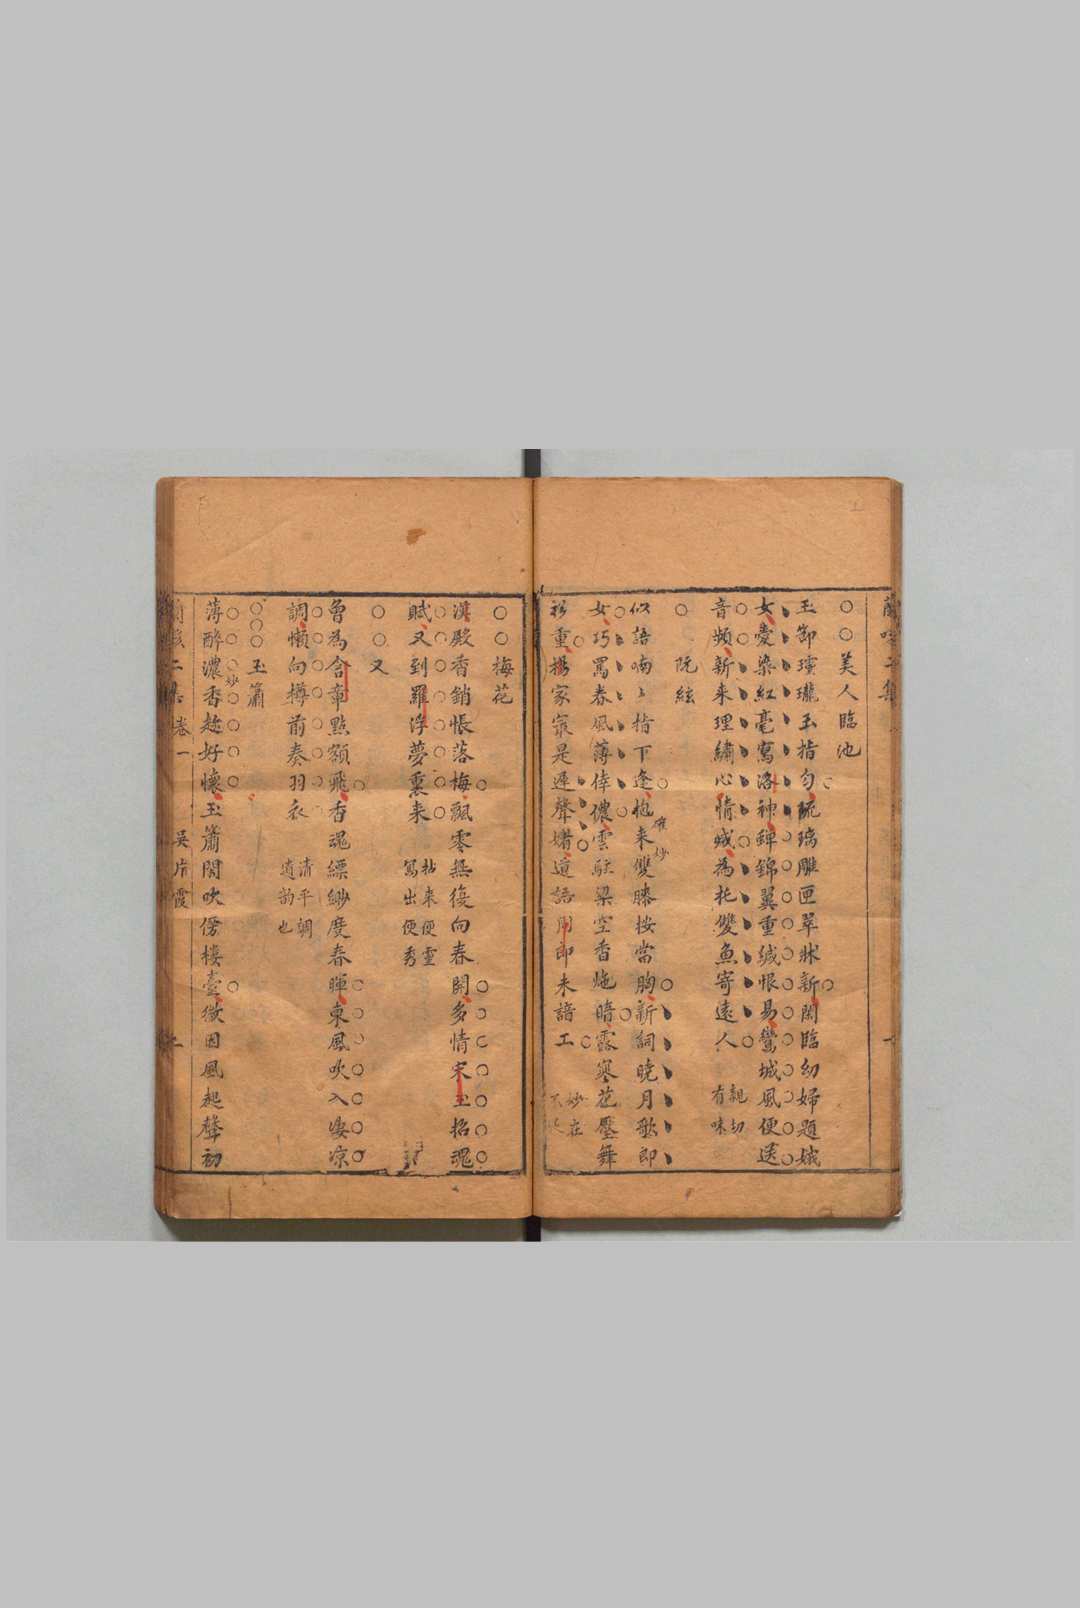 美人臨池
玉釧瓏瓏玉指勻琉璃雕匣翠牀新閑臨幼婦題娥
女愛染紅毫寫洛神錦翼重緘恨易鸞城風便送
音頻新来理繡心情城為托雙魚寄遠人 親切有味
阮絃
似語喃〻指下逢抱来雙膝按當胸新詞曉月歌即 確妙
女巧罵春風薄倖儂雲駐梁空香灺暗露寒花壓舞
衫重揚家㝡是遲聲媎道語周郎未諳工 妙在
梅花
漢殿香銷帳落梅飄零無復向春開多情宋玉招魂
賦又到羅浮夢裏来 拈来便靈寫出便秀
又
魯為含章點額飛香魂縹緲度春暉東風吹入凄凉
調懶向樽前奏羽衣 清平調逍韵也
玉簫
薄醉濃香趂好懷玉簫閒吹傍樓臺微因風起聲初 妙
二集 卷一 吳片霞